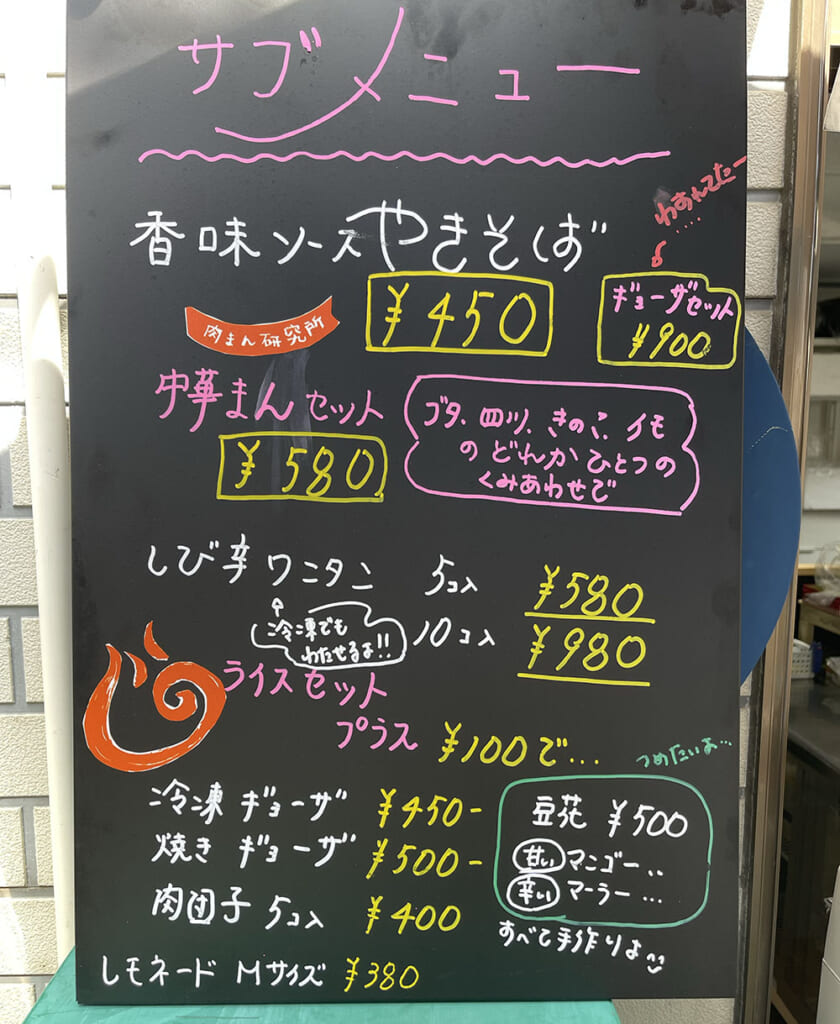 サブメニュー
わすれてたー
.....
香味ソースやきそば
¥450
ギョーザセット
¥900
肉まん研究所
中華まんセット
¥580
ブタ、四川、きのこ、イモ
のどれかひとつの
くみあわせで
しび辛ワニタン 5コ入 ¥580
冷凍でも
わたせるよ!!
10コ入 ¥980
ライスセット
プラス ¥100で...
つめたいよ...
冷凍ギョーザ ¥450-
焼きギョーザ ¥500-
肉団子 5コ入 ¥400
レモネード Mサイズ ¥380
豆花 ¥500
甘い マニゴー..
辛い マーラー...
すべて手作りよ